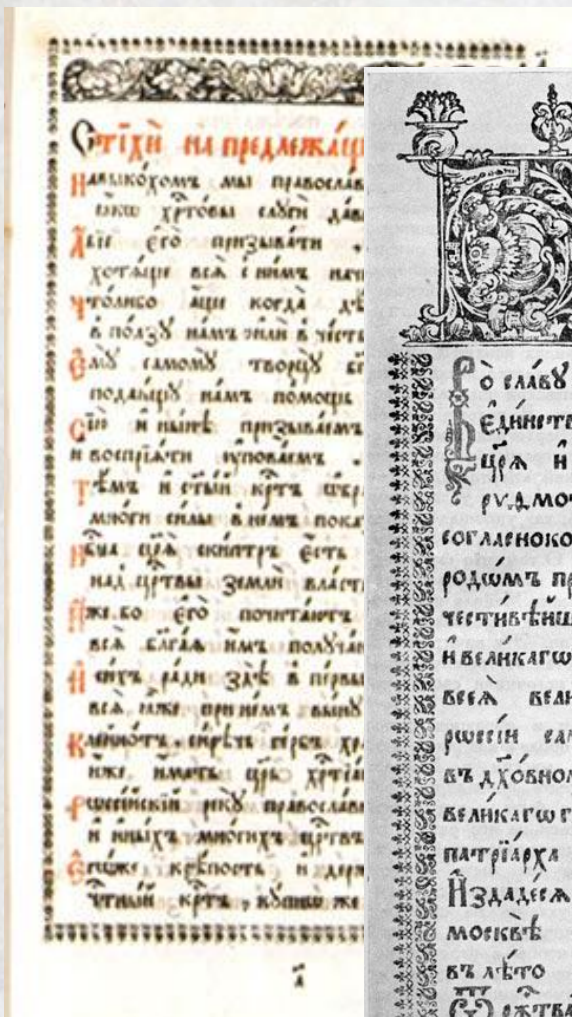 Стїхѝ на предлежа́щ
Навыко́хомъ мы̀ правосла́в
ꙗ҆́кѡ хрⷭ҇то́вы слѹгѝ да́в
є҆гѡ̀ призыва́ти
хотѧ́ще всѧ̀ с ни́мъ нач
Что́либо а҆́ще когда̀ дѣ
в по́лзꙋ на́мъ и҆лѝ в че́сть
Є҆мꙋ̀ самомꙋ̀ творцꙋ̀
подаю́щꙋ на́мъ по́мощь
Сїю̀ и҆ ны́нѣ призыва́емъ
и҆ воспрїѧ́ти ᲂу҆пова́емъ
Тѣ́мъ и҆ ст҃ы́й крⷭ҇тъ
мно́ги си́лы в не́мъ пока
цр҃ѧ̀ ски́птръ є҆́сть
над̾ црⷭ҇твы землѝ вла́сть
є҆гѡ̀ почита́ютъ
всѧ̀ бл҃га́ѧ и҆̀мъ полꙋча
И҆ си́хъ ра́ди здѣ̀ в пе́рвы
всѧ̀ ꙗ҆́же при не́мъ
Клейно́тъ, си́рѣчь ге́рбъ хра
и҆́же и҆́мать цр҃ь хрⷭ҇тїа́н
Рѡссі́йскїй рекꙋ̀ правосла́в
и҆ и҆ны́хъ мно́гихъ црⷭ҇твъ
крѣ́пость и҆ держ
чтⷭ҇ны́й крⷭ҇тъ, кꙋ́пнѡ же
а҃
Во сла́вꙋ
Є҆ди́нств
цр҃ѧ̀ и҆
согла́сноко
родѡ́мъ пр
честивѣ́йш
и҆ вели́кагѡ
всеѧ̀ вели
рѡссі́и сам
въ дх҃о́вном
вели́кагѡ г
патрїа́рха
И҆здаде́сѧ
москвѣ̀
въ лѣ́то
Ѿ ржⷭ҇тва̀